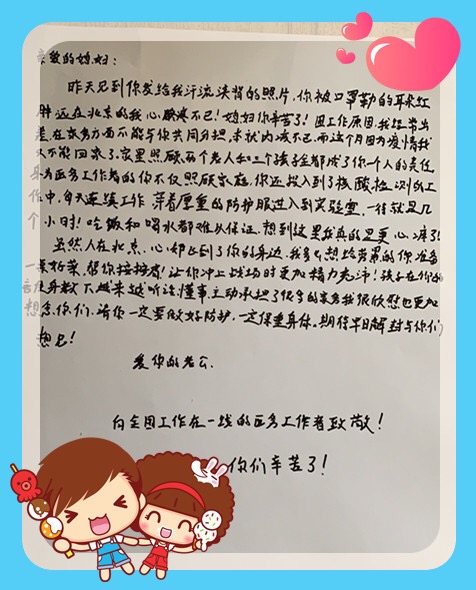 亲爱的媳妇：
昨天见到你发给我汗流浃背的照片，你被口罩勒的耳朵红
肿远在北京的我心疼不已！媳妇你辛苦了！因工作原因，我经常出
差，在家务方面不能与你共同分担，本就内疚不已，而这个月因为疫情我
又不能回来了，家里照顾两个老人和三个孩子全都成了你一个人的责任
身为医务工作者的你不仅照顾家庭，你还投入到了核酸检测的工
作中，每天连续工作 穿着厚重的防护服进入到实验室，一待就是几
个小时！吃饭和喝水都难以保证，想到这里我真的是更心疼了！
虽然人在北京，心却飞到了你的身边，我多么想给劳累的你准备
一桌好菜，帮你按按肩！让你冲上战场时更加精力充沛！孩子在你的
言传身教下越来越听话懂事，主动承担了很多的家务我很欣慰也更加
想念你们，请你一定要做好防护，一定保重身体。期待早日解封与你们
想见！
爱你的老公.
向全国工作在一线的医务工作者致敬！
你们辛苦了！